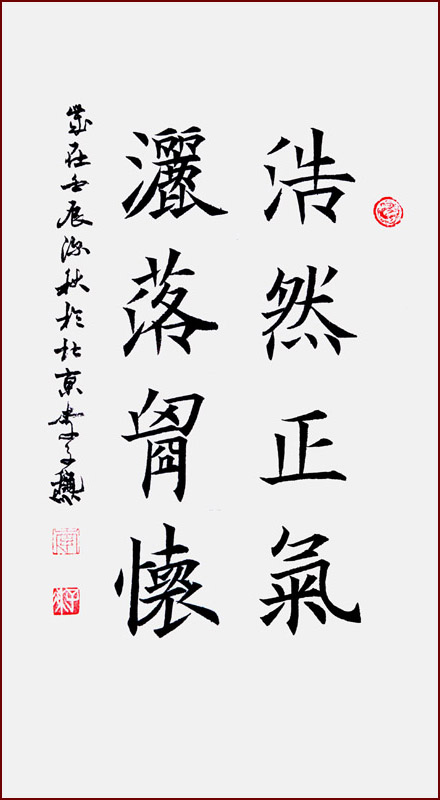 浩然正氣
灑落胷懷
歲在壬辰深秋於北京李子